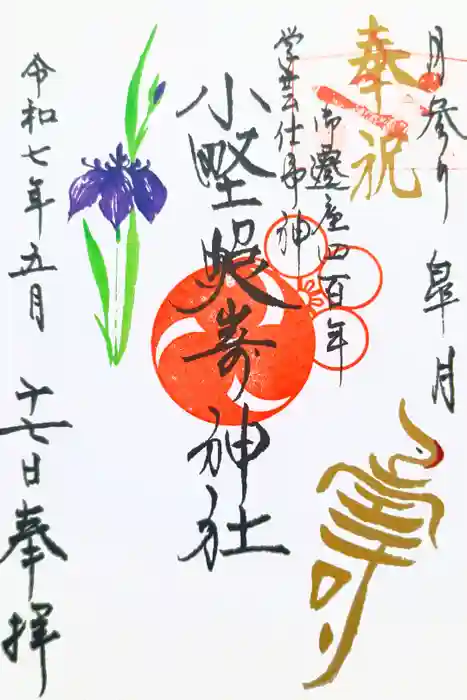 月参り 皐月
奉祝
壽
御遷座四百年
学芸仕事神
小野照嵜神社
令和七年五月
十七日奉拝